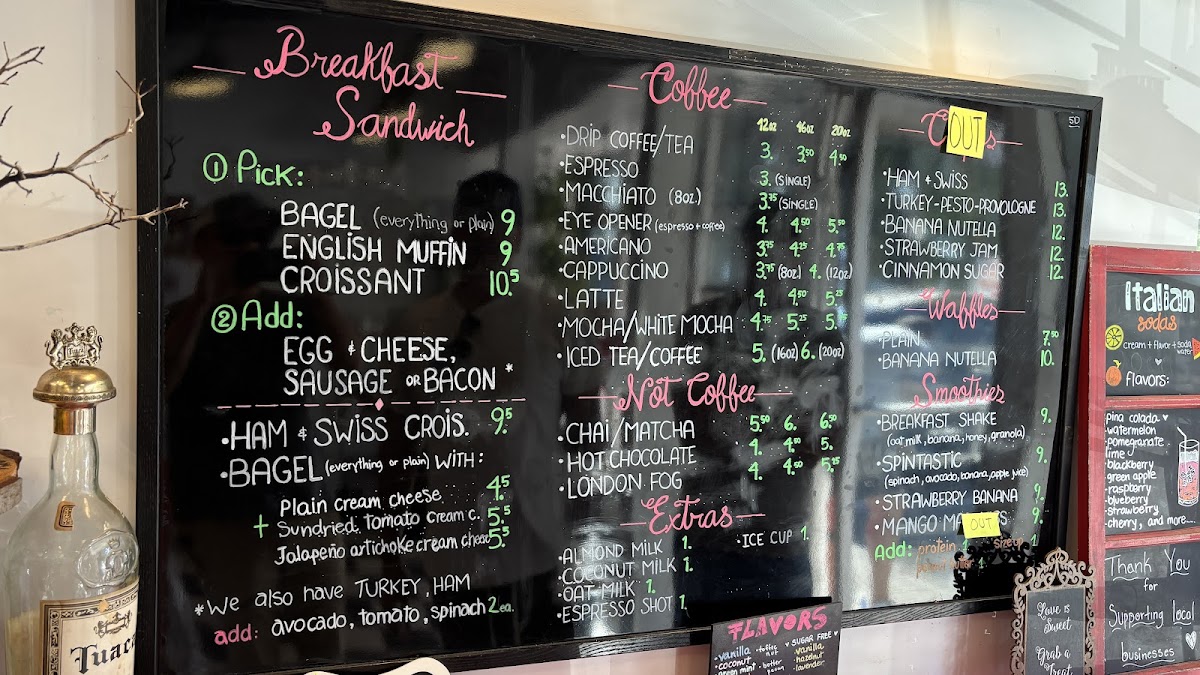 Breakfast
Sandwich
① Pick:
BAGEL (everything or plain) 9
ENGLISH MUFFIN 9
CROISSANT 10.5
② Add:
EGG & CHEESE,
SAUSAGE OR BACON *
·HAM & SWISS CROIS. 9.5
·BAGEL (everything or plain) WITH:
Plain cream cheese 4.5
+ Sundried. Tomato cream c. 5.5
Jalapeño artichoke cream cheese 5.5
*We also have TURKEY, HAM
add: avocado, tomato, spinach 2 ea.
Coffee
12oz 16oz 20oz
·DRIP COFFEE/TEA 3. 3.50 4.50
·ESPRESSO 3. (SINGLE)
·MACCHIATO (8oz.) 3.75 (SINGLE)
·EYE OPENER (espresso + coffee) 4. 4.50 5.50
·AMERICANO 3.75 4.25 4.75
·CAPPUCCINO 3.75 (8oz) 4. (12oz)
·LATTE 4. 4.50 5.25
·MOCHA/WHITE MOCHA 4.75 5.25 5.75
·ICED TEA/COFFEE 5. (16oz) 6. (20oz)
Not Coffee
·CHAI/MATCHA 5.50 6. 6.50
·HOT CHOCOLATE 4. 4.50 5.
·LONDON FOG 4. 4.50 5.25
Extras
·ALMOND MILK 1.
·COCONUT MILK 1.
·OAT MILK 1.
·ESPRESSO SHOT 1.
·ICE CUP 1.
SD
OUT
·HAM & SWISS 13.
·TURKEY-PESTO-PROVOLOGNE 13.
·BANANA NUTELLA 12.
·STRAWBERRY JAM 12.
·CINNAMON SUGAR 12.
Waffles
·PLAIN 7.50
·BANANA NUTELLA 10.
Smoothies
·BREAKFAST SHAKE 9.
(oat milk, banana, honey, granola)
·SPINTASTIC 9.
(spinach, avocado, banana, apple juice)
·STRAWBERRY BANANA 9.
·MANGO 9.
OUT
Add: protein
FLAVORS
·vanilla
·coconut
♥ SUGAR FREE ♥
vanilla
hazelnut
·lavender
Italian
sodas
cream + flavor + soda water
flavors:
·pina colada ♥
·watermelon
·pomegranate
lime
·blackberry
·green apple
·raspberry
·blueberry
·strawberry
·cherry, and more...
Thank You
for
Supporting Local
businesses
Love is
Sweet
Grab a
Treat
Tuaca